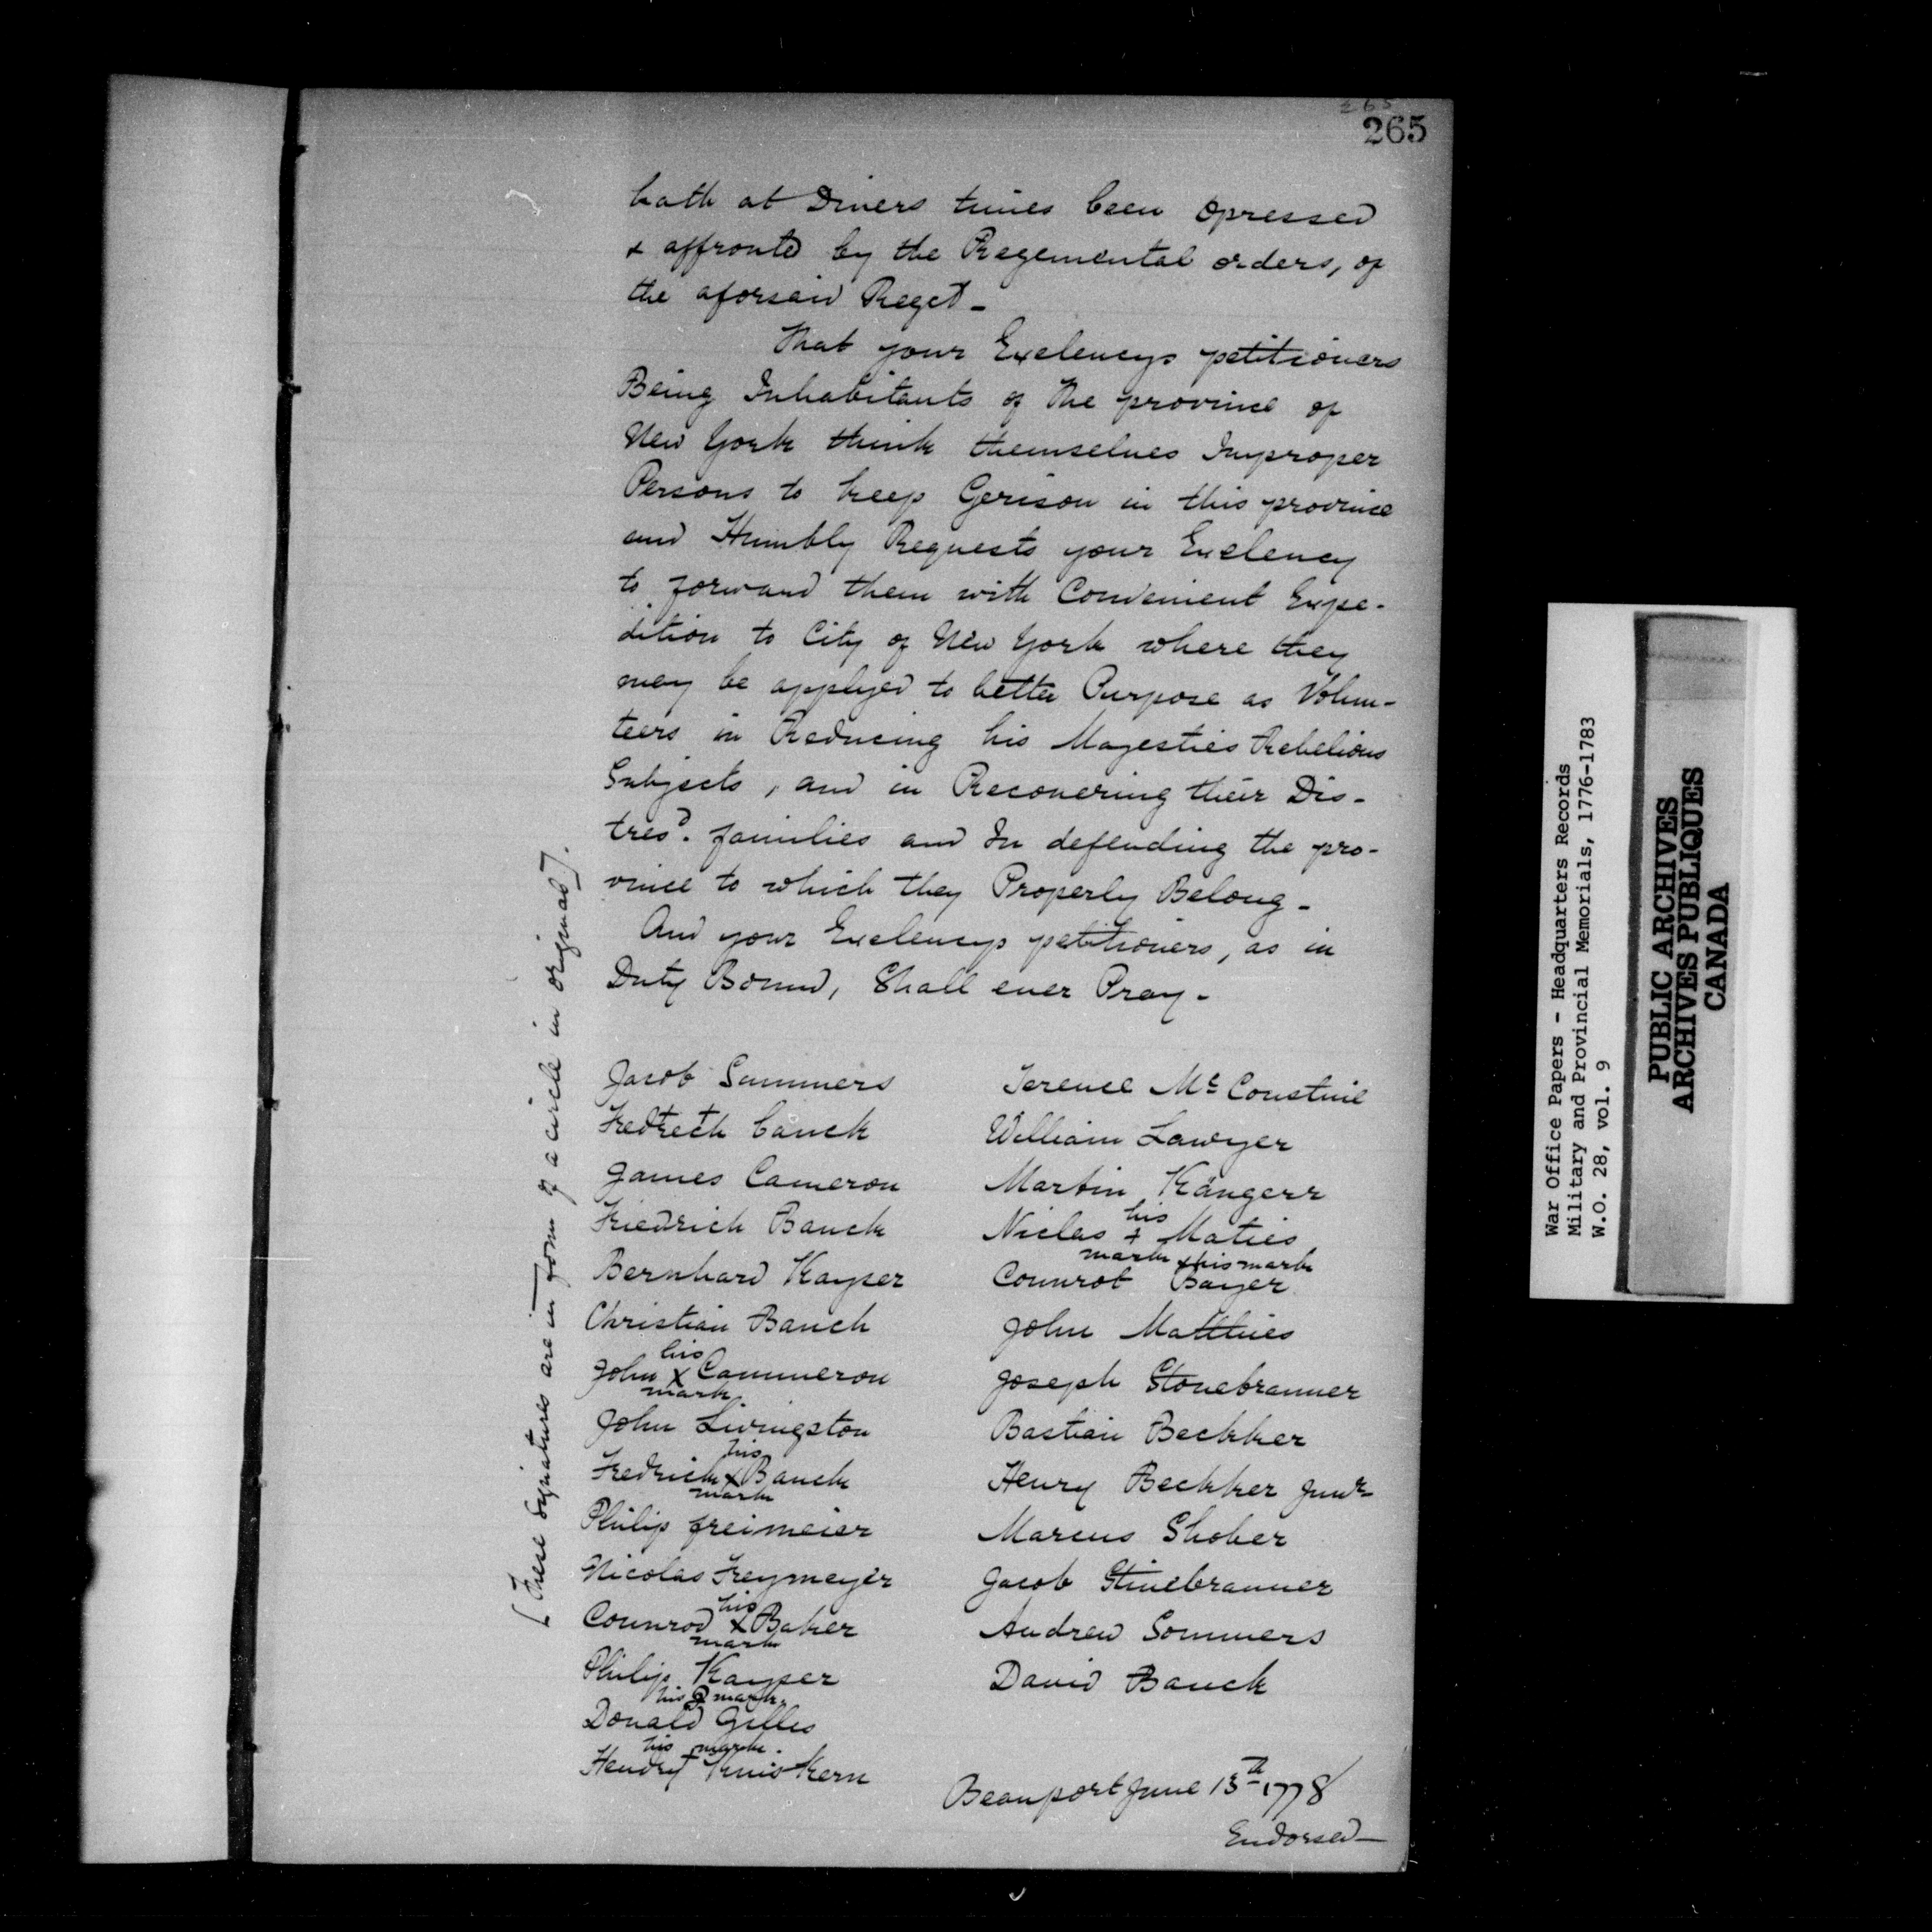 265
265
hath at Divers times been Opressed
& affrontd by the Regemental orders, of
the aforsaid Reget -
That your Exelencys petitioners
Being Inhabitants of the province of
New York think themselves Improper
Persons to keep Gerison in this province
and Humbly Requests your Exelency
to forward them with Convenient Expe-
dition to City of New York where they
may be applyed to better Purpose as Volun-
teers in Reducing his Magesties Rebelious
Subjects, and in Recovering their Dis-
tresd. families and In defending the pro-
vince to which they Properly Belong -
And your Exelencys petitioners, as in
Duty Bound, Shall ever Pray -
[These signatures are in form of a circle in original].
Jacob Summers
Fredrech Cauck
James Cameron
Friedrich Bauck
Bernhard Kayser
Christian Bauch
his
John X Cammeron
mark
John Livingston
his
Fredrich X Bauck
mark
Philip freimeier
Nicolas Freymeyer
his
Counrod X Baker
mark
Philip Kayser
his mark
Donald Gilles
his mark.
Hendry Kniskern
Terence Mc
William Lawyer
Martin Kängerr
his
Niclas + Maties
mark
x his mark
Counrot Bayer
John Matthies
Joseph Stonebranner
Bastian Beckker
Henry Beckker Junr
Marcus Shober
Jacob Stinebranner
Andrew Sommers
David Bauck
Beauport June 13th 1778
Endorsed—
War Office Papers - Headquarters Records
Military and Provincial Memorials, 1776-1783
W.O. 28, vol. 9
PUBLIC ARCHIVES
ARCHIVES PUBLIQUES
CANADA